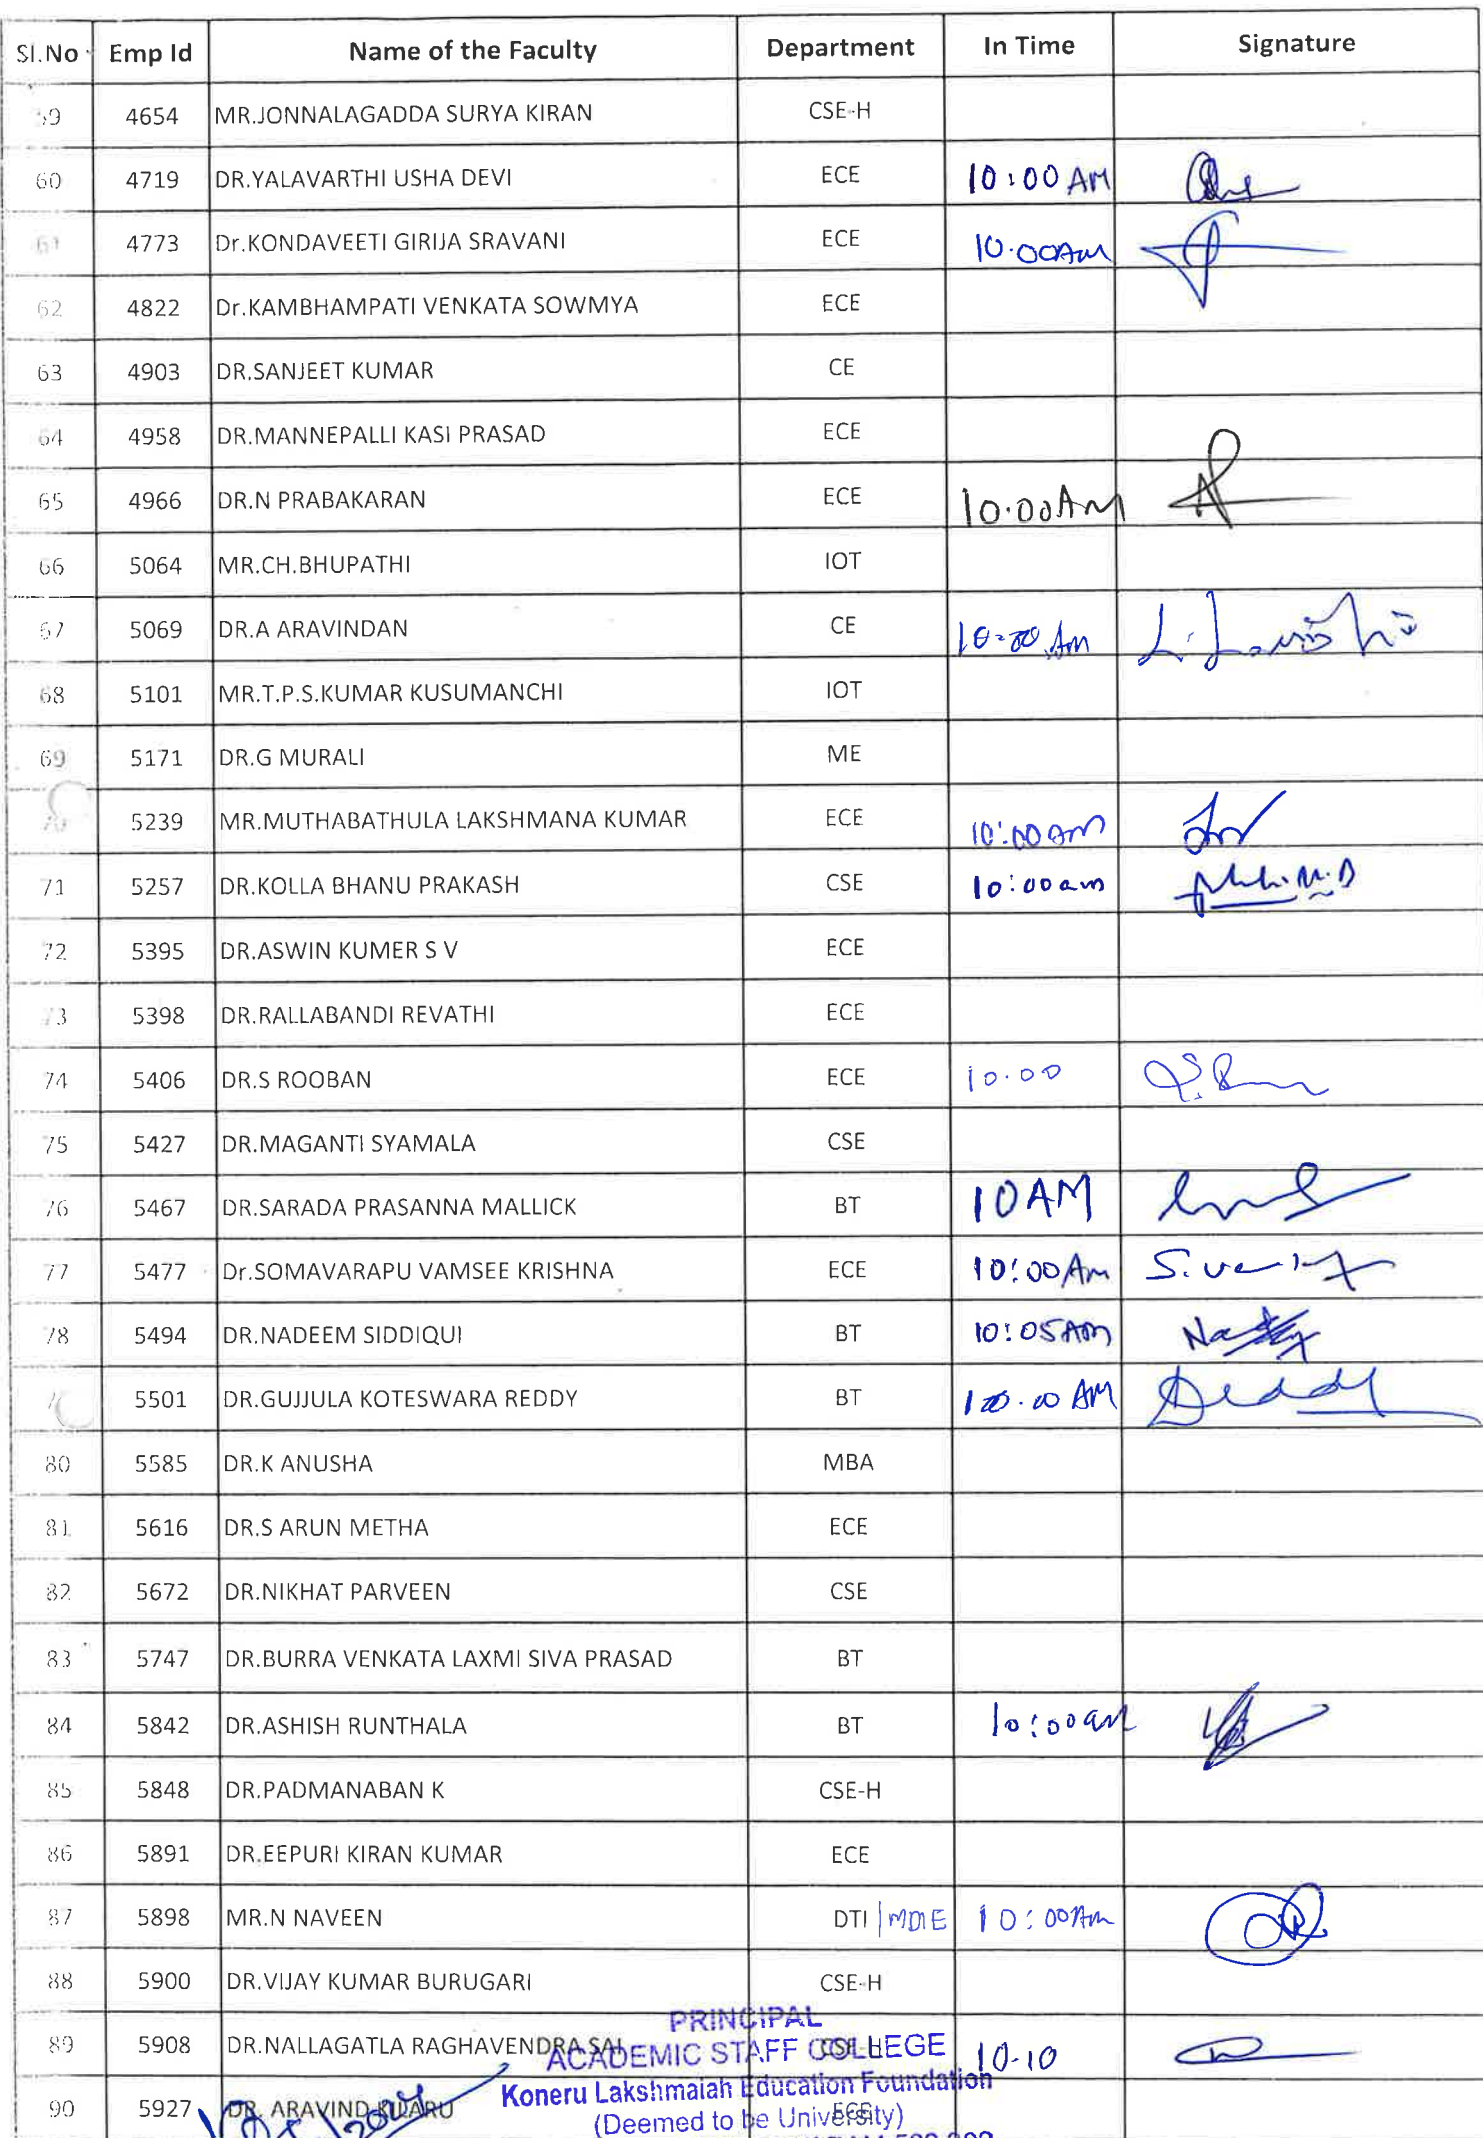 Sl.No Emp Id Name of the Faculty Department In Time Signature
59 4654 MR.JONNALAGADDA SURYA KIRAN CSE-H
60 4719 DR.YALAVARTHI USHA DEVI ECE 10:00 AM
61 4773 Dr.KONDAVEETI GIRIJA SRAVANI ECE 10.00Am
62 4822 Dr.KAMBHAMPATI VENKATA SOWMYA ECE
63 4903 DR.SANJEET KUMAR CE
64 4958 DR.MANNEPALLI KASI PRASAD ECE
65 4966 DR.N PRABAKARAN ECE 10.00Am
66 5064 MR.CH.BHUPATHI IOT
67 5069 DR.A ARAVINDAN CE 10-00 Am
68 5101 MR.T.P.S.KUMAR KUSUMANCHI IOT
69 5171 DR.G MURALI ME
70 5239 MR.MUTHABATHULA LAKSHMANA KUMAR ECE 10:00 am
71 5257 DR.KOLLA BHANU PRAKASH CSE 10:00 am
72 5395 DR.ASWIN KUMER S V ECE
73 5398 DR.RALLABANDI REVATHI ECE
74 5406 DR.S ROOBAN ECE 10.00
75 5427 DR.MAGANTI SYAMALA CSE
76 5467 DR.SARADA PRASANNA MALLICK BT 10AM
77 5477 Dr.SOMAVARAPU VAMSEE KRISHNA ECE 10:00 Am
78 5494 DR.NADEEM SIDDIQUI BT 10:05 AM
5501 DR.GUJJULA KOTESWARA REDDY BT AM Reddy
80 5585 DR.K ANUSHA MBA
81 5616 DR.S ARUN METHA ECE
82 5672 DR.NIKHAT PARVEEN CSE
83 5747 DR.BURRA VENKATA LAXMI SIVA PRASAD BT
84 5842 DR.ASHISH RUNTHALA BT 10:00 am
85 5848 DR.PADMANABAN K CSE-H
86 5891 DR.EEPURI KIRAN KUMAR ECE
87 5898 MR.N NAVEEN DTI 10:00Am
88 5900 DR.VIJAY KUMAR BURUGARI CSE-H
PRINCIPAL
89 5908 DR.NALLAGATLA RAGHAVENDRA SAI 10-10
ACADEMIC STAFF COLLEGE
Koneru Lakshmaiah Education Foundation
90 5927 DR. ARAVIND KILARU ECE
(Deemed to be University)